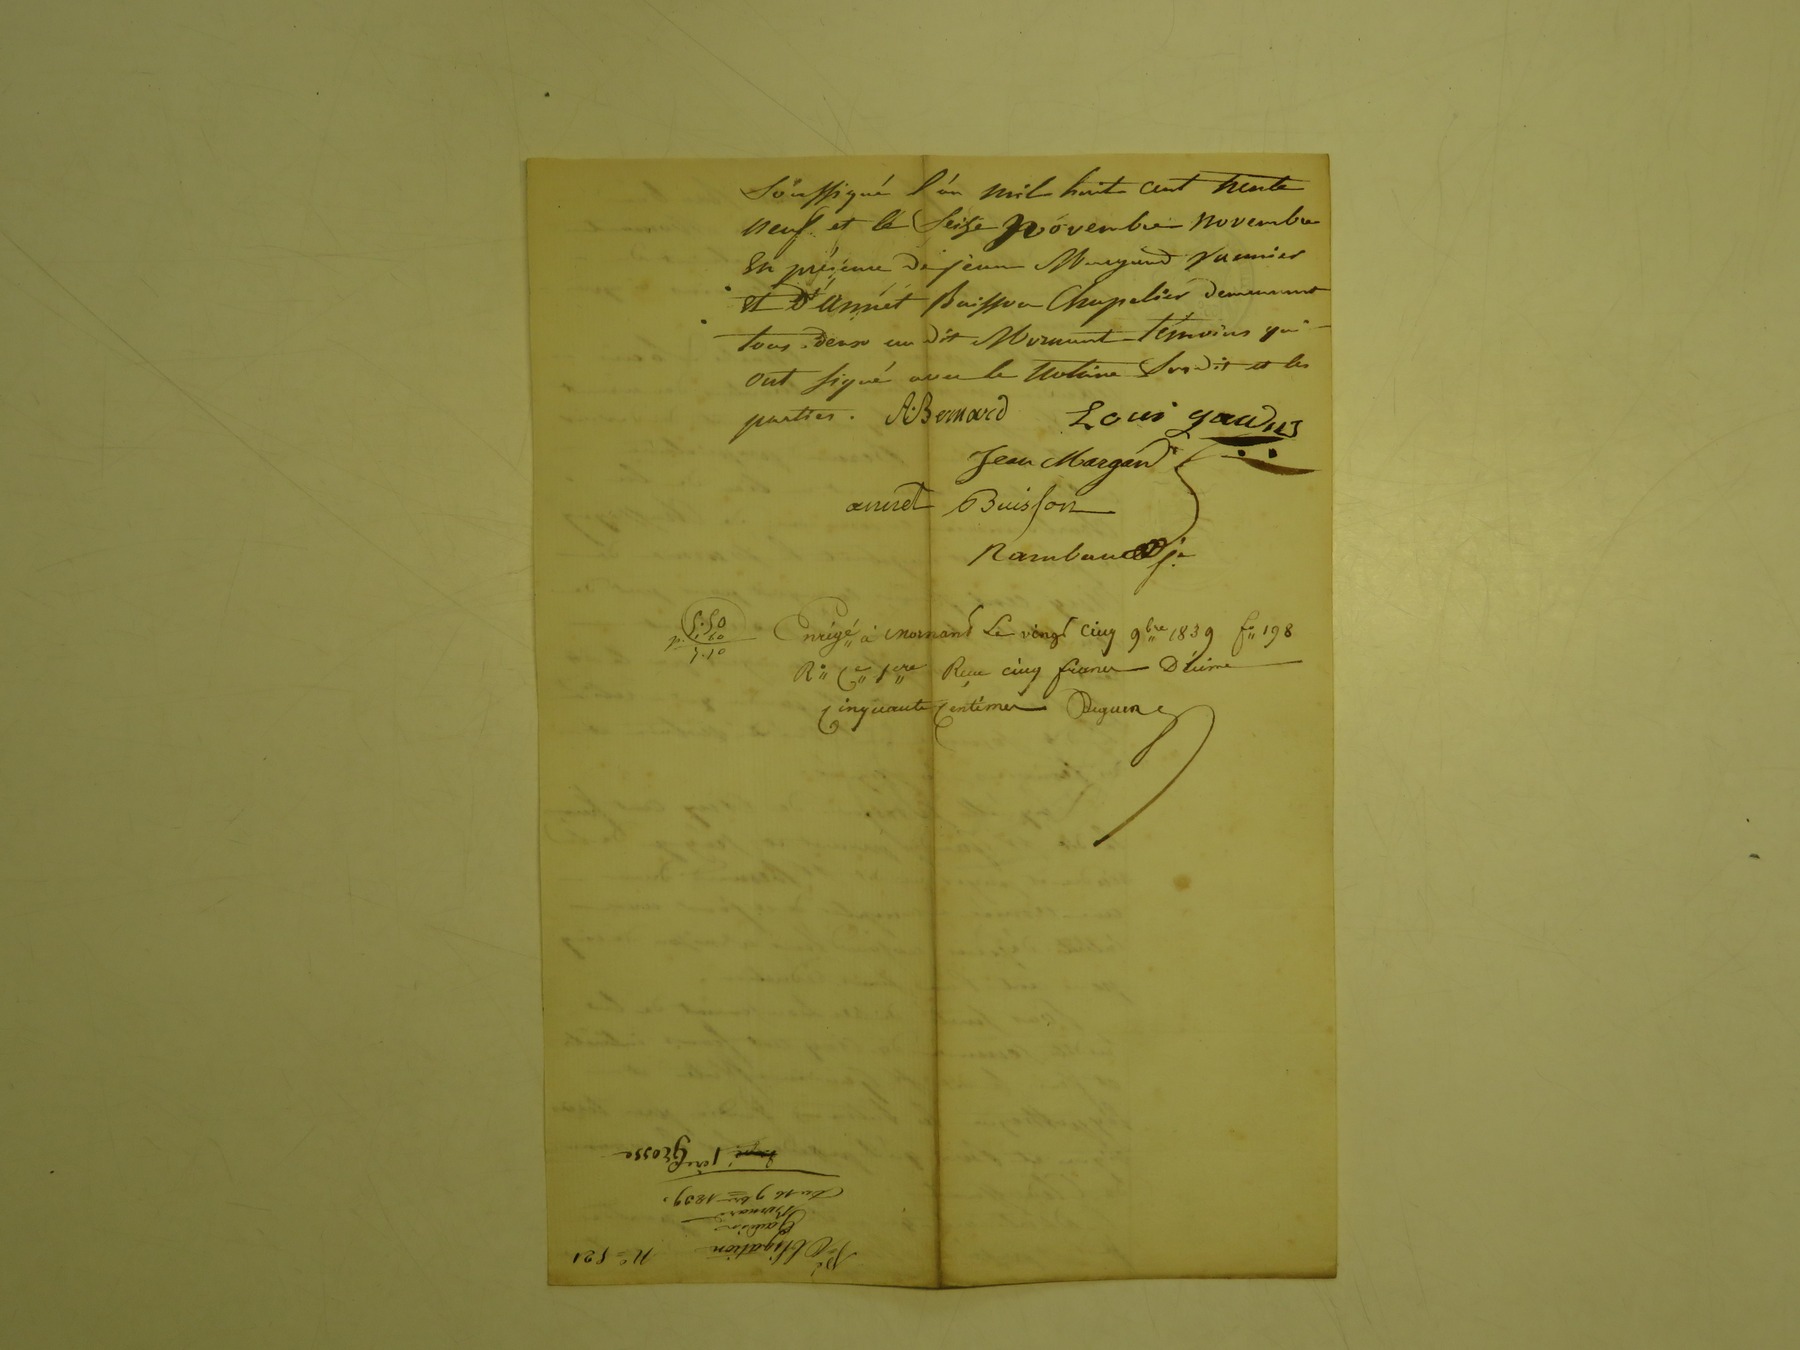 Soussigné l'an mil huit cent trente
neuf et le Seize novembre novembre
En présence de jean Margand vannier
et d'Annet Buisson Chapelier demeurant
tous deux au dit Mornant témoins qui
ont signé avec le Notaire Susdit et les
parties. A. Bernard Louis gaudin
Jean Margand
annet Buisson
Rambaud jr
5.50
9.10
Enrégé à Mornant Le vingt cinq 9bre 1839 fo 198
Ro Ce 1ere Reçu cinq francs Décime
Cinquante Centimes
No 521
Obligation
Gaudin
Bernard
Du 16 9bre 1839.
1ere Grosse